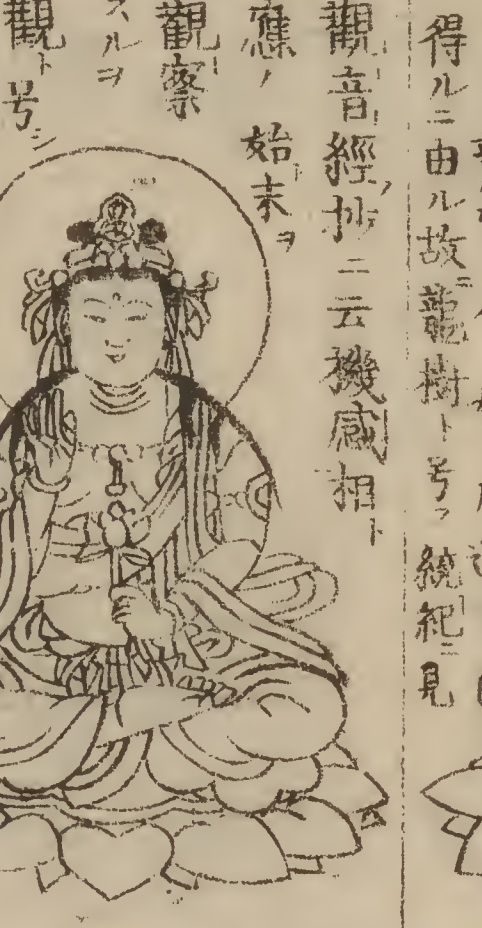 得ルニ由ル故ニ龍樹ト号ス統紀ニ見
觀音經抄ニ云機感相ト
應ノ始末ヲ
觀察
スルヲ
觀ト号シ